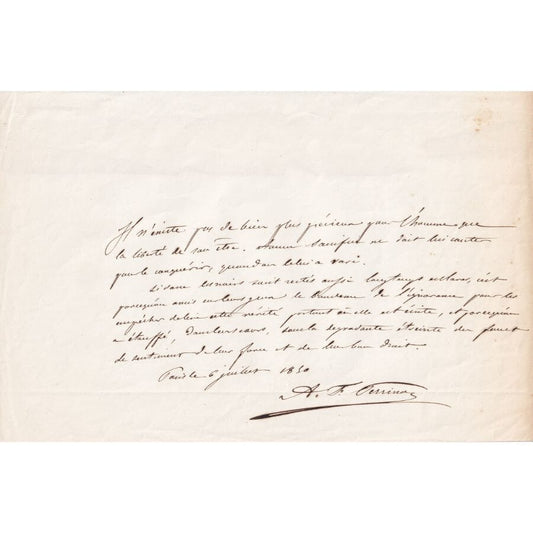 Il n'existe pas de bien plus précieux pour l'homme que
la liberté de son être. Aucun sacrifice ne doit lui couter
pour le conquérir, quand on le lui a ravi.
Si les noirs sont restés aussi longtemps esclaves, c'est
parcequ'on a mis sur leurs yeux le bandeau de l'ignorance pour les
empêcher de lire cette vérité partout où elle est écrite, et parcequ'on
a étouffé, dans leurs cœurs, sous la dégradante étreinte du fouet
le sentiment de leur force et de leur bon droit.
Paris le 6 juillet 1850
A. F. Perrinon